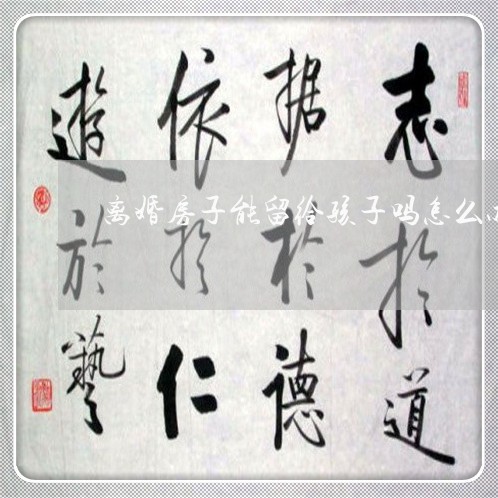 志扵道
据扵德
依扵仁
遊於藝
离婚房子能留给孩子吗怎么